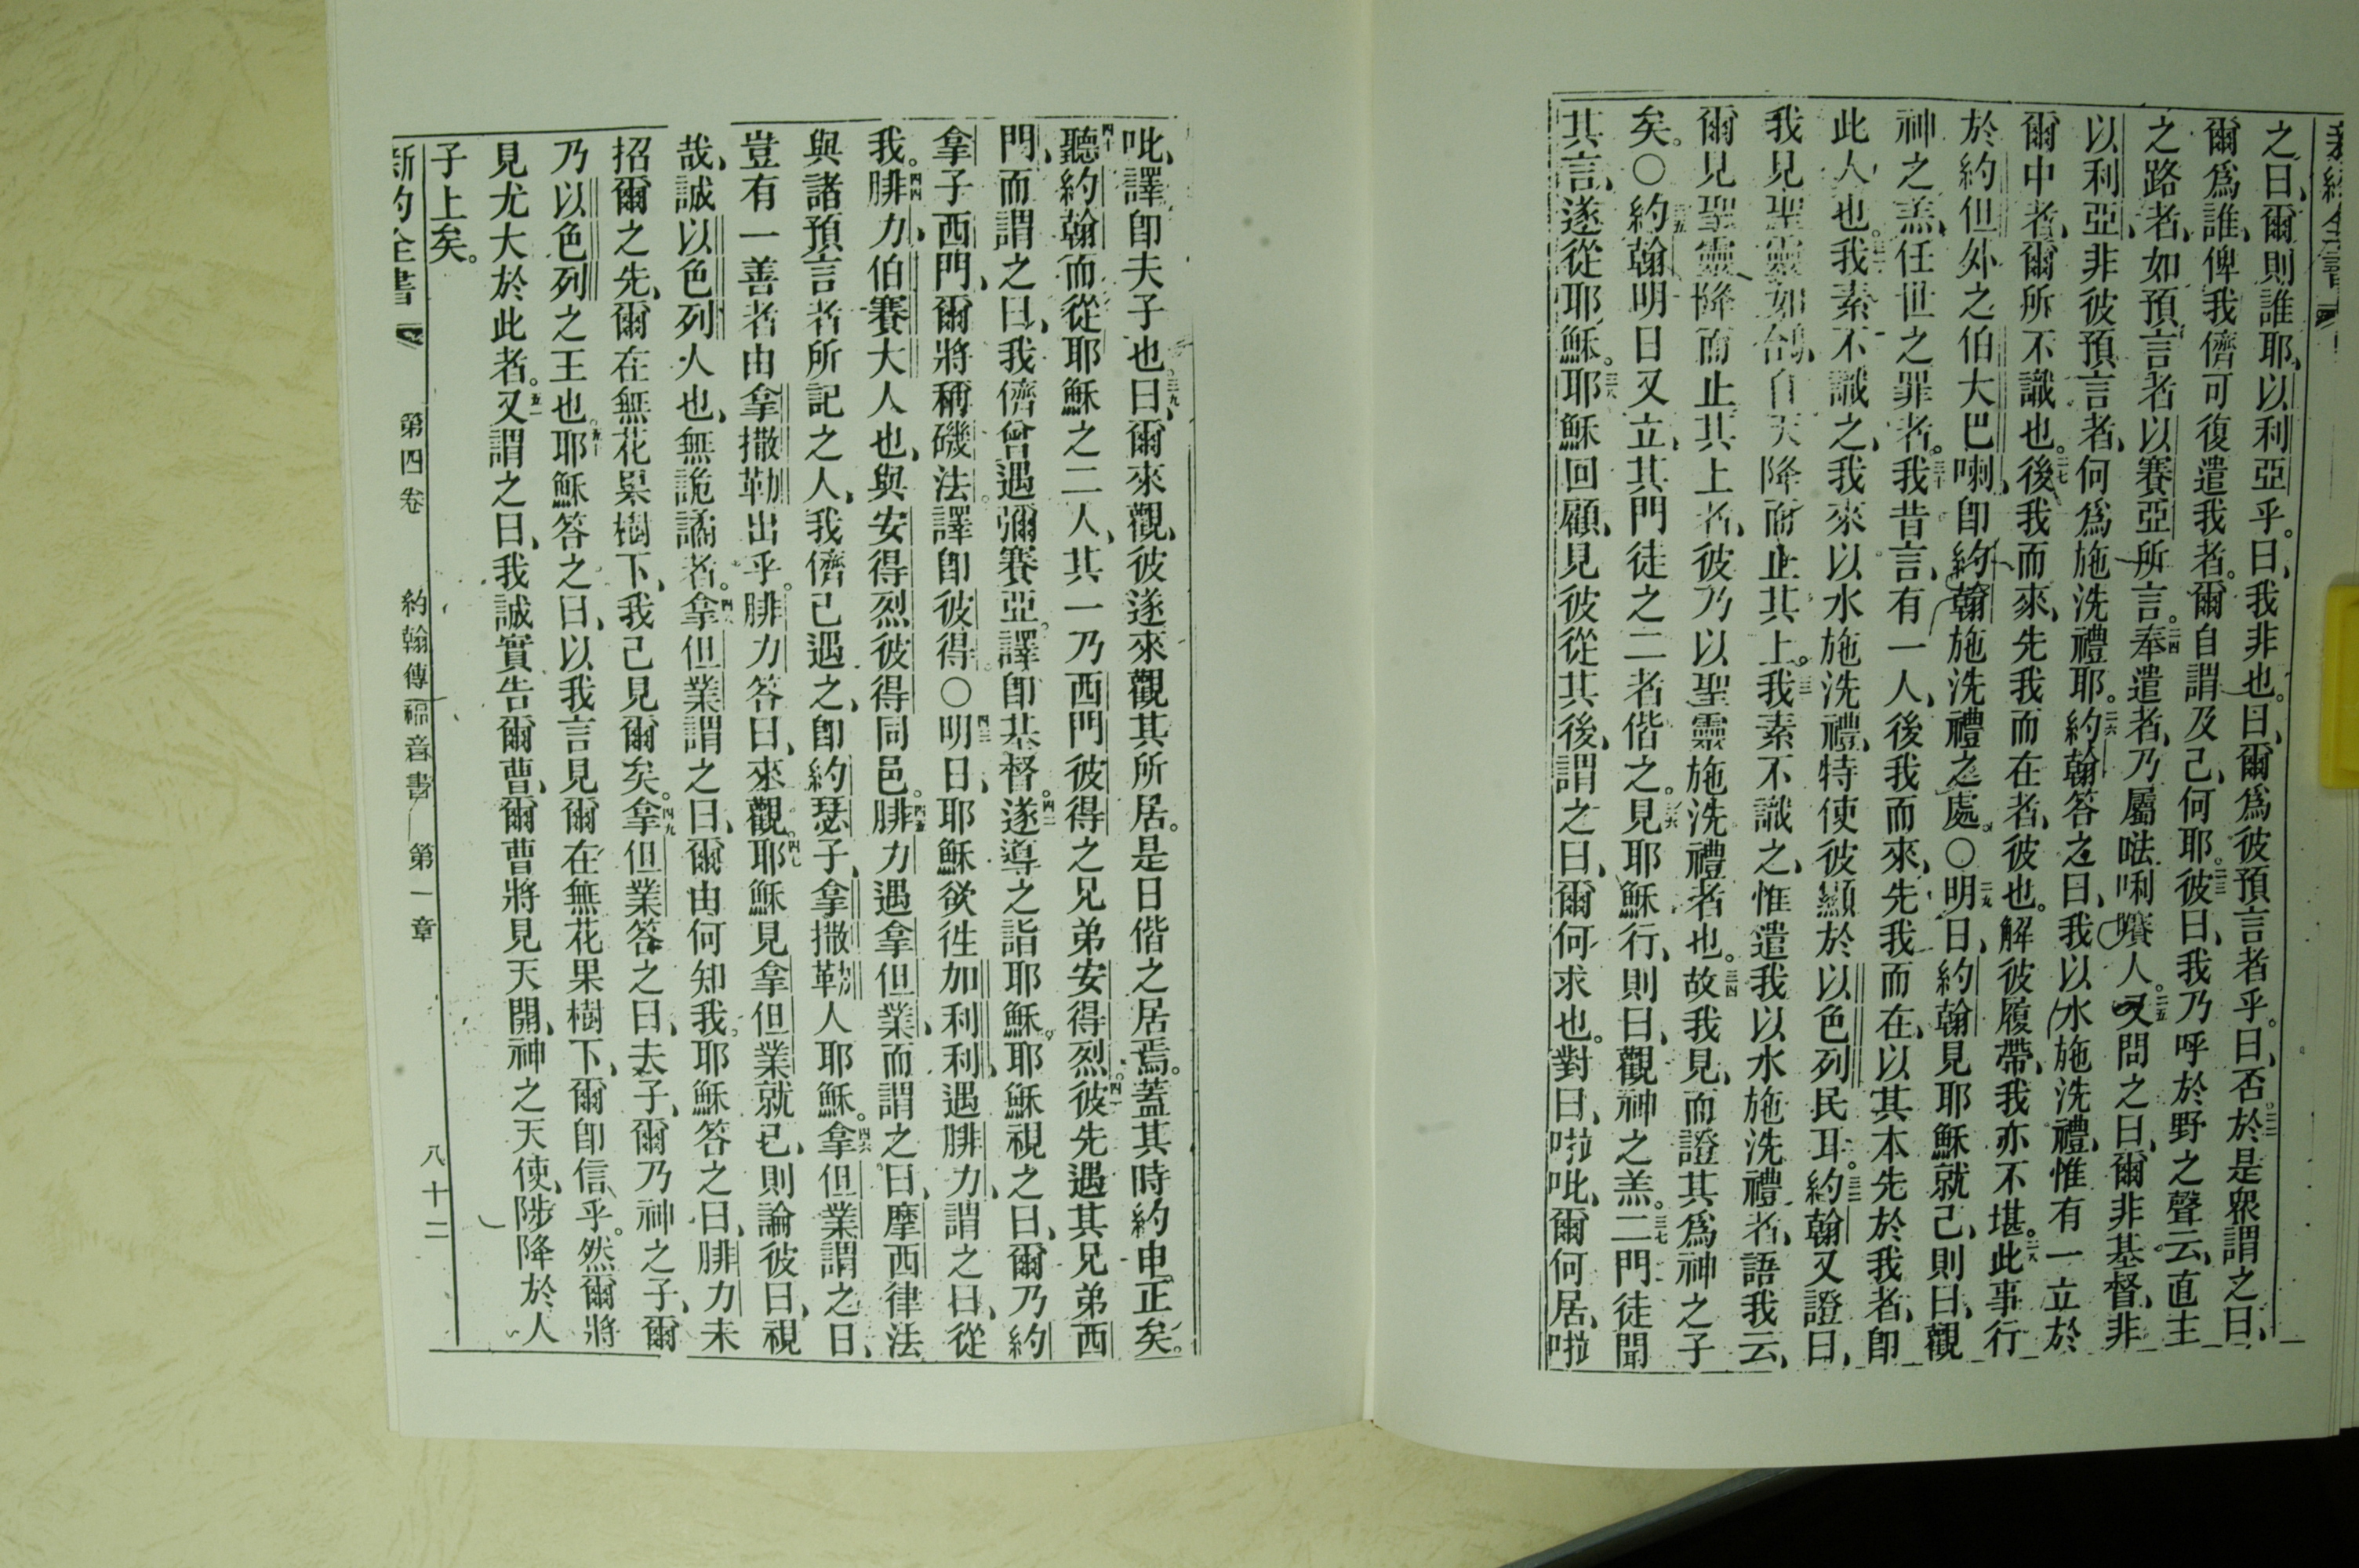 之曰、爾則誰耶、以利亞乎。曰、我非也。曰、爾爲彼預言者乎。曰、否。二二於是衆謂之曰、
爾爲誰、俾我儕可復遣我者。爾自謂及己、何耶。二三彼曰、我乃呼於野之聲云、直主
之路者、如預言者以賽亞所言。二四奉遣者、乃屬𠵽唎㘔人。二五又問之曰、爾非基督、非
以利亞、非彼預言者、何爲施洗禮耶。二六約翰答之曰、我以水施洗禮、惟有一立於
爾中者、爾所不識也。二七後我而來、先我而在者、彼也。解彼履帶、我亦不堪。二八此事行
於約但外之伯大巴喇、卽約翰施洗禮之處。〇二九明日、約翰見耶穌就己、則曰、觀
神之羔、任世之罪者。三十我昔言、有一人、後我而來、先我而在、以其本先於我者、卽
此人也。三一我素不識之、我來以水施洗禮、特使彼顯於以色列民耳。三二約翰又證曰、
我見聖靈如鴿、自天降而止其上。三三我素不識之、惟遣我以水施洗禮者、語我云、
爾見聖靈降而止其上者、彼乃以聖靈施洗禮者也。三四故我見、而證其爲神之子
矣。〇三五約翰明日又立、其門徒之二者偕之。三六見耶穌行、則曰、觀神之羔。三七二門徒聞
其言、遂從耶穌。三八耶穌回顧、見彼從其後、謂之曰、爾何求也。對曰、啦吡、爾何居、啦
吡、譯卽夫子也。三九曰、爾來觀、彼遂來觀其所居。是日偕之居焉。蓋其時約申正矣。
四十聽約翰而從耶穌之二人、其一乃西門彼得之兄弟安得烈。四一彼先遇其兄弟西
門、而謂之曰、我儕曾遇彌賽亞。譯卽基督。四二遂導之詣耶穌。耶穌視之曰、爾乃約
拿子西門、爾將稱磯法。譯卽彼得。〇四三明日、耶穌欲徃加利利、遇腓力、謂之曰、從
我。四四腓力、伯賽大人也、與安得烈彼得同邑。四五腓力遇拿但業、而謂之曰、摩西律法
與諸預言者所記之人、我儕已遇之、卽約瑟子、拿撒勒人耶穌。四六拿但業謂之曰、
豈有一善者由拿撒勒出乎。腓力答曰、來觀。四七耶穌見拿但業就己、則論彼曰、視
哉、誠以色列人也、無詭譎者。四八拿但業謂之曰、爾由何知我。耶穌答之曰、腓力未
招爾之先、爾在無花果樹下、我已見爾矣。四九拿但業答之曰、夫子、爾乃神之子、爾
乃以色列之王也。五十耶穌答之曰、以我言見爾在無花果樹下、爾卽信乎。然爾將
見尤大於此者。五一又謂之曰、我誠實告爾曹、爾曹將見天開、神之天使、陟降於人
子上矣。
新約全書 第四卷 約翰傳福音書 第一章 八十二